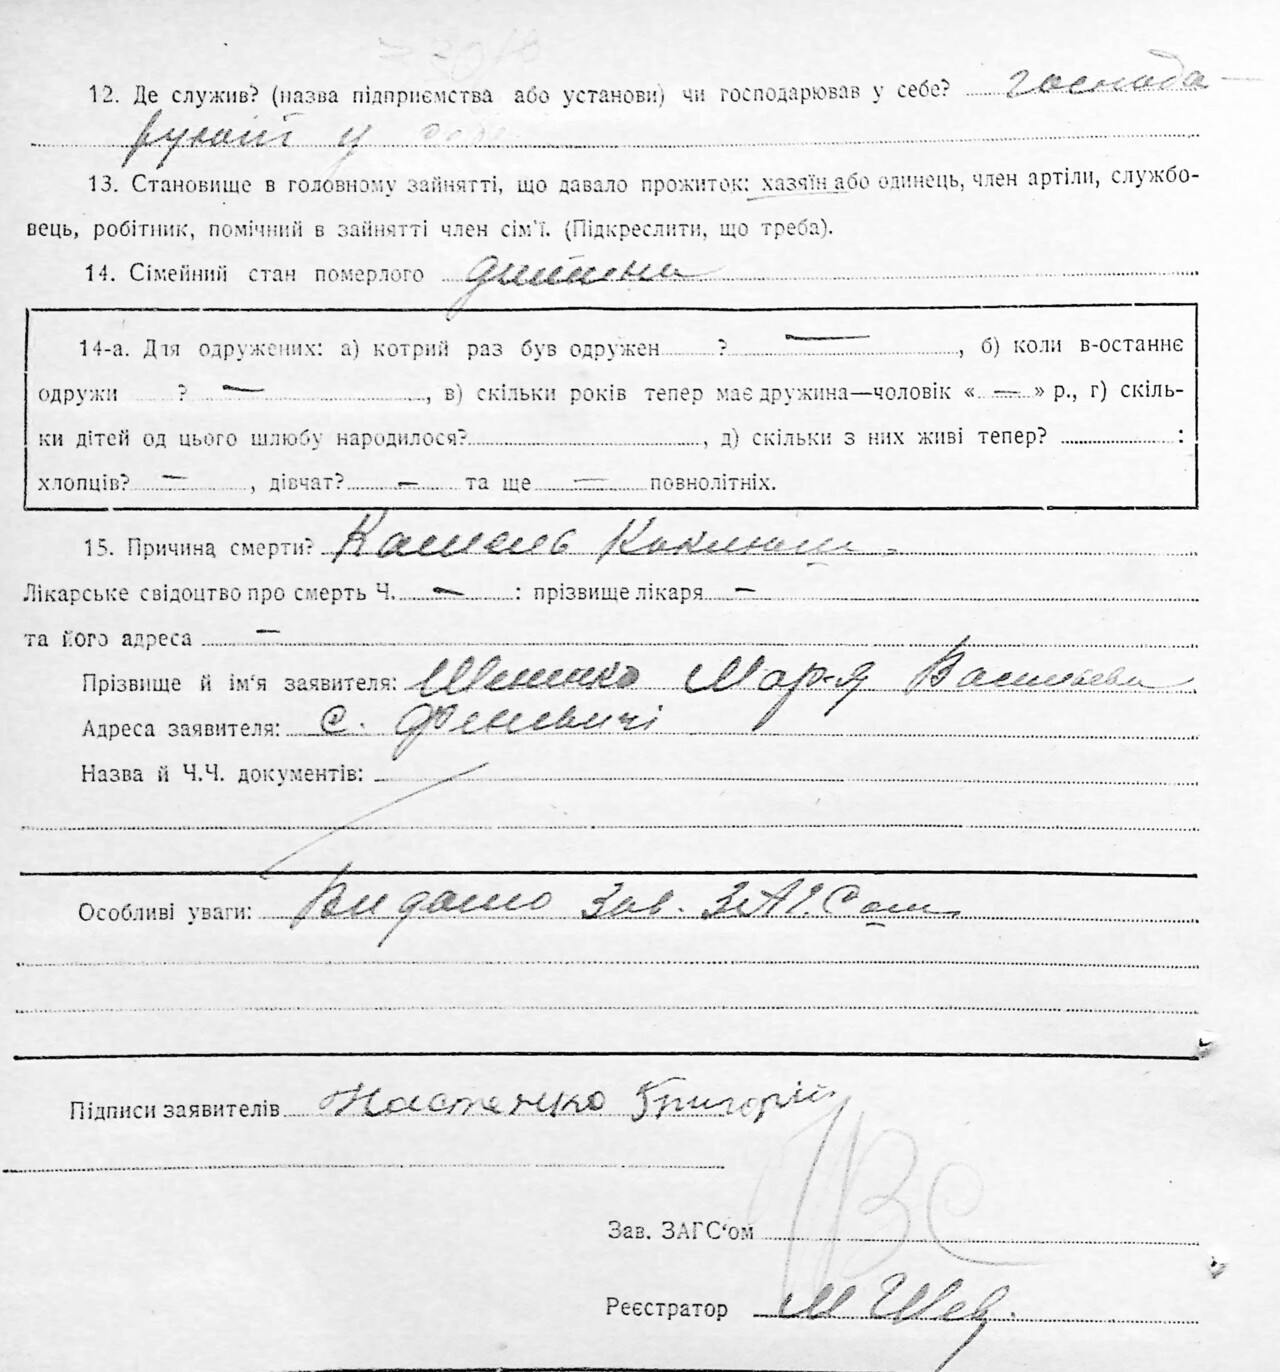 12. Де служив? (назва підприємства або установи) чи господарював у себе? господа-
рующ у себе
13. Становище в головному зайнятті, що давало прожиток: хазяїн або одинець, член артіли, службо-
вець, робітник, помічний в зайнятті член сім'ї. (Підкреслити, що треба).
14. Сімейний стан померлого дитина
14-а. Для одружених: а) котрий раз був одружен ? —, б) коли в-останнє
одружи ? —, в) скільки років тепер має дружина—чоловік «—» р., г) скіль-
ки дітей од цього шлюбу народилося?, д) скільки з них живі тепер? :
хлопців? —, дівчат? — та ще — повнолітніх.
15. Причина смерти? Кашель Коклюш
Лікарське свідоцтво про смерть Ч. — : прізвище лікаря —
та його адреса —
Прізвище й ім'я заявителя: Мар-я Васильева
Адреса заявителя: с. Феневичі
Назва й Ч.Ч. документів:
Особливі уваги: Видано Зав. ЗАГСом
Підписи заявителів Настенко Григорій
Зав. ЗАГС'ом
Реєстратор М Шев